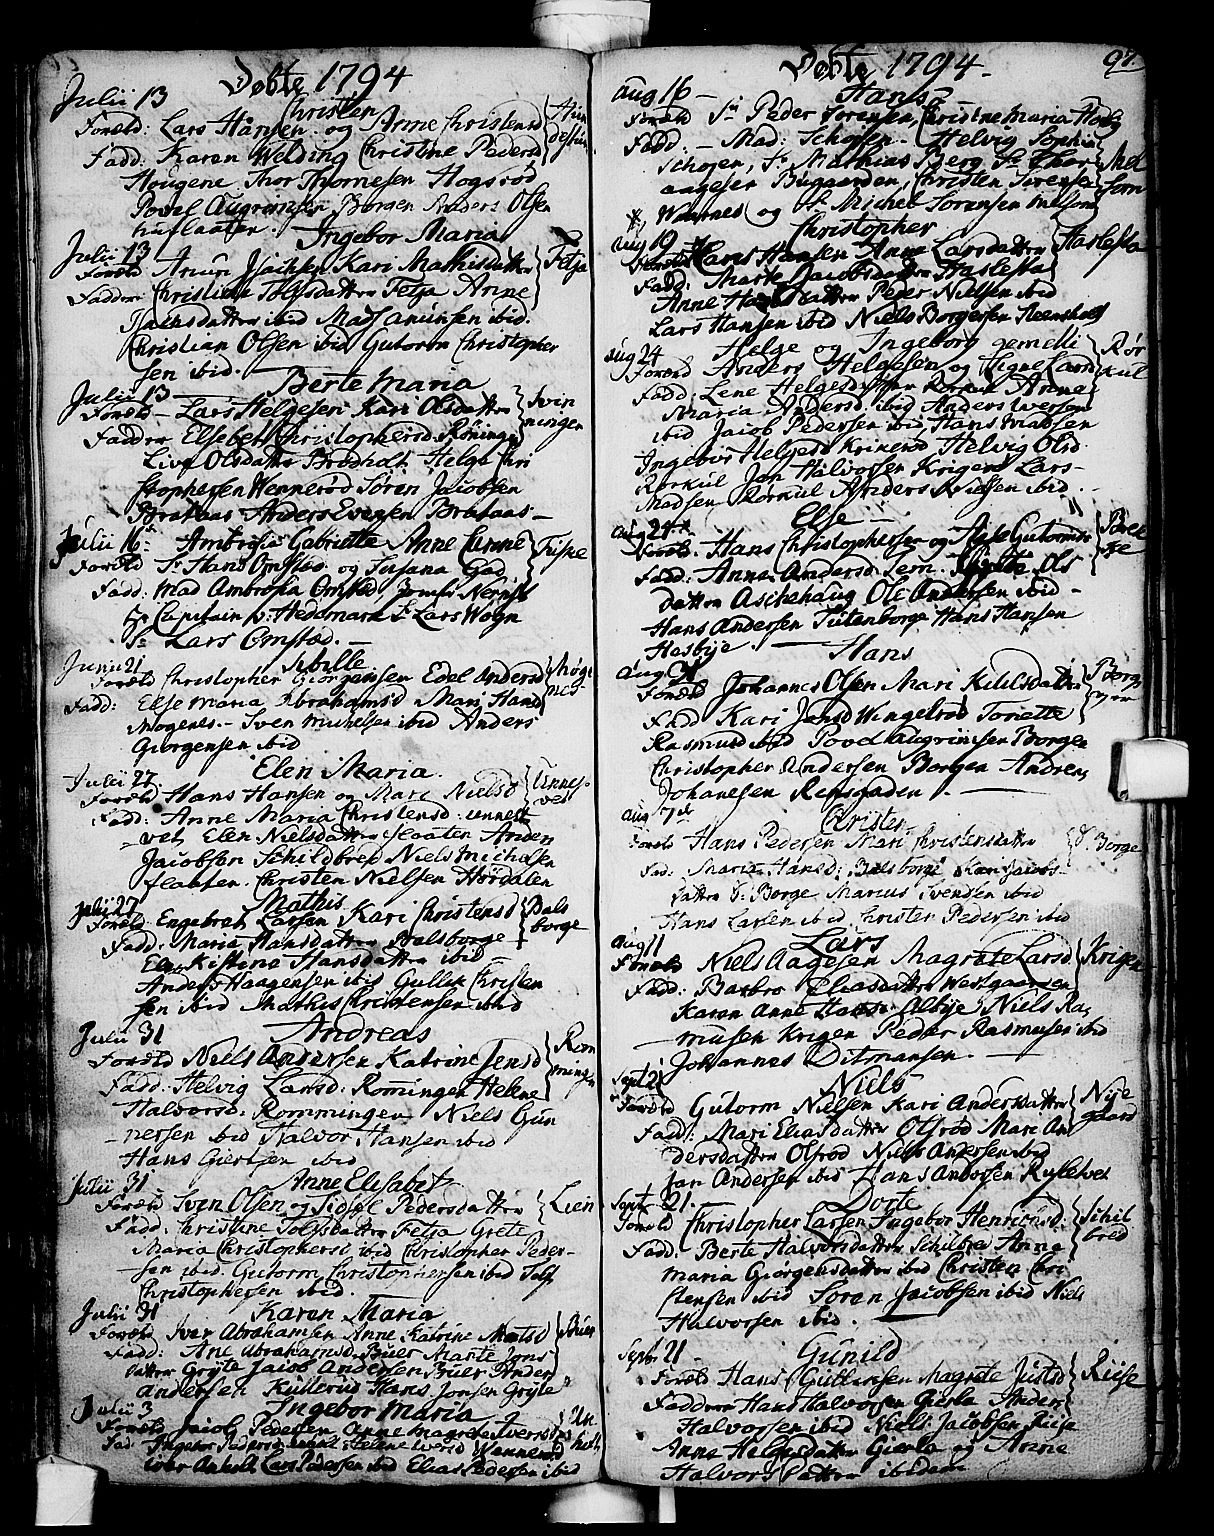 Døbte 1794
Julii 13
Christen
Foræld: Lars Hansen og Anne Christensd
Fadd: Karen Welding Christine Pedersd
Hougene Thor Thornesen Hogsrød
Povel Augrimsen Borgen Anders Olsen
Ingebor Maria
Julii 13
Foræld Amun Isachsen Kari Mathisdatter Fetja
Faddere Christiane Tolfsdatter Fetja Anne
Isachsdatter ibid Mads Amunsen ibid.
Christian Olsen ibid Gutorm Christopher
sen ibid.
Berte Maria
Julii 13
Foræld Lars Helgesen Kari Olsdatter Svin
ningen
Faddere Elsebet Christophersd Røninge
Live Olsdatter Brodholt Helge Chri
stophersen Wennerød Søren Jacobsen
Brataas Anders Evensen Brataas
Julii 16 Ambrosia Gabriette Anne Lunne
Foræld Sr Hans Omsted og Susana Gad
Fadd: Mad Ambrosia Omsted Jomfr
Hr Capitain v: Hedemark Sr Lars Wogn
Sr Lars Omsted.
Sibille
Junii 21
Foræld Christopher Giørgensen Edel Andersd Møge
nes
Fadd: Else Maria Abrahamsd Mari Hansd
Mogenes Sven Michelsen ibid Anders
Giorgensen ibid
Julii 27
Elen Maria
Foræld Hans Hansen og Mari Nielsd Unnes
vet
Fadd: Anne Maria Christensd unnest
vet, Elen Nielsdatter Flaaten Anders
Jacobsen Schilbred Niels Michelsen
flaaten. Christen Nielsen Hørdalen
Mathis
Julii 27
Foræld Engebret Larsen Kari Christensd Bals
borge
Fadd: Maria Hansdatter Balsborge
Elen Kistine Hansdatter ibid
Anders Haagensen ibid Gullik Christen
sen ibid Mathis Christensen ibid
Julii 31
Andreas
Foræld Niels Andersen Katrine Jensd Rom
mingen
Fadd: Helvig Larsd: Romingen Helene
Halvorsd: Rommingen Niels Gun
nersen ibid Halvor Hansen ibid
Hans Giertsen ibid
Julii 31
Anne Elisabet
Foræld Sven Olsen og Sidsel Pedersdatter Lien
Fadd: Christine Tolfsdatter Fetja Grete
Maria Christophersd ibid Christopher Peder-
sen ibid. Gutorm Christophersen ibid Tolf
Christophersen ibid.
Julii 31
Karen Maria
Foræld Iver Abrahamsen Anne Katrine Matsd Buer
Fadd: Ane Abrahamsd Buer Marte Jons
datter Grøte Jacob Andersen Buer Anders
Andersen Kullerud Hans Jonsen Grøte
Julii 3
Ingebor Maria
Foræld Jacob Pedersen Anne Magrete Iversd
Fad: Ingebor Pedersd Helene Iversd Wennerød
Iver Anholt Lars Pedersen ibid Elias Pedersen ibid
Døbte 1794
97.
Aug 16
Hans
Foræld Sr Peder Sørensen, Christine Maria Holst Mel
som
Fadd. Mad: Schofen. Helvig Sophia
Schofen, Sr Mathias Berg Sr Thor
aagesen Bugaarden, Christen Sørensen
Waarnes og Sr Michel Sørensen Melsom
Christopher
Aug 19
Foræld Hans Hansen Anne Larsdatter Haslesta
Fadd: Marte Jacobsdatter Haslesta
Anne Hansdatter Peder Nielsen ibid
Lars Hansen ibid Niels Borgersen Reensholt
Aug 24
Helge og Ingeborg gemelli
Foræld Anders Helgesen og Signe Larsd Rør
kul
Fadd: Lene Helgesdatter Rorkul Anne
Maria Andersd ibid Anders Iversen
ibid Jacob Pedersen ibid Hans Madsen
Ingebor Helgesd Krinend Helvig Olsd
Rørkul Jon Halvorsen Krigene Lars
Madsen Rorkul Anders Nielsen ibid
Aug 24
Else
Foræld. Hans Christophersen og Aase Gutormsd
Fadd: Anne Andersd Lem. Grete Ols
datter Aschehaug Ole Andersen ibid
Hans Andersen Tutenborge Hans Hansen
Hasbije
Hans
Aug
Foræld Johannes Olsen Mari Kiilsdatter Borg
gen
Fadd Kari Jensd Wingelrød Toriette
Rasmusd ibid Povel Augrimsen Borgen
Christopher Andersen Borgen Andreas
Johanesen Rensgaden
Aug 7de
Christen
Foræld Hans Pedersen Mari Christensdatter S: Borge
Fad: Maria Hansd: Balsborge Kari Jacobs-
datter S: Borge Marius Svendsen ibid
Hans Larsen ibid Christen Pedersen ibid
Aug 11
Lars
Foræld Niels Aagesen Magrete Larsd Krigen
Fadd: Barbro Eliasdatter Westgaarden
Karen Anne Hansd Aasbije Niels Ras
musen Krigen Peder Rasmusen ibid
Johannes Ditmansen.
Sept 21
Niels
Foræld Gutorm Nielsen Kari Andersdatter Nye
gaard
Fadd: Mari Eliasdatter Olsrød Mari An
dersdatter Olsrød Niels Andersen ibid
Jan Andersen ibid Hans Andersen Rysletvet
Sept 21.
Dorte
Foræld Christopher Larsen Ingebor Henrichsd Schil
bred
Fadd: Berte Halvorsdatter Schilbred Anne
Maria Giørgensdatter ibid Christen Chri
stensen ibid Søren Jacobsen ibid Niels
Halvorsen ibid.
Septbr 21
Gunild
Foræld Hans Guttormsen Magrete Justsd Riise
Faddere Hans Halvorsen Gierla Anders
Halvorsen ibid Niels Jacobsen Riise
Anne Helgesdatter Gierla og Anne
Halvors Datter ibidem